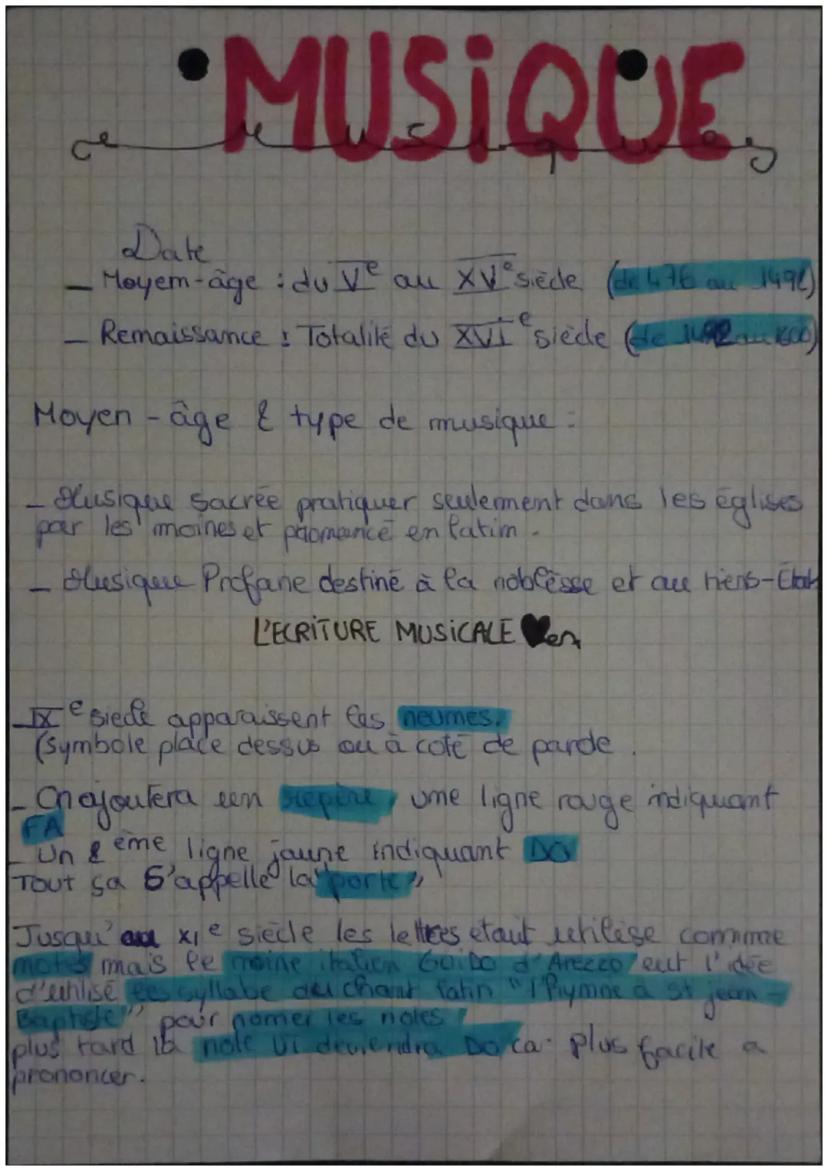 MUSiQUE
Date
- Moyem-âge : du Ve au XVe siècle (de 476 au 1492)
- Remaissance : Totalité du XVIe siècle (de 1492 au 1600)
Moyen-âge 2 type de musique :
- Musique sacrée pratiquer seulement dans les églises
par les moines et prononcé en latim.
- Musique Profane destiné à la noblesse et au tiers-État
L'ECRITURE MUSICALE
- IXe siecle apparaissent les neumes.
(symbole place dessus ou à coté de parole.
- On ajoutera un repère, une ligne rouge indiquant
FA
- Un 2ème ligne jaune indiquant DO
Tout sa s'appelle la "porté"
Jusqu'au XIe siècle les lettres etait utilise comme
notes mais le moine italien Guido d'Arezzo eut l'idée
d'utilisé les syllabe du chant latin "l'Hymne à st jean-
Baptiste" pour nomer les notes.
plus tard la note Ut deviendra DO ca. plus facile a
prononcer.